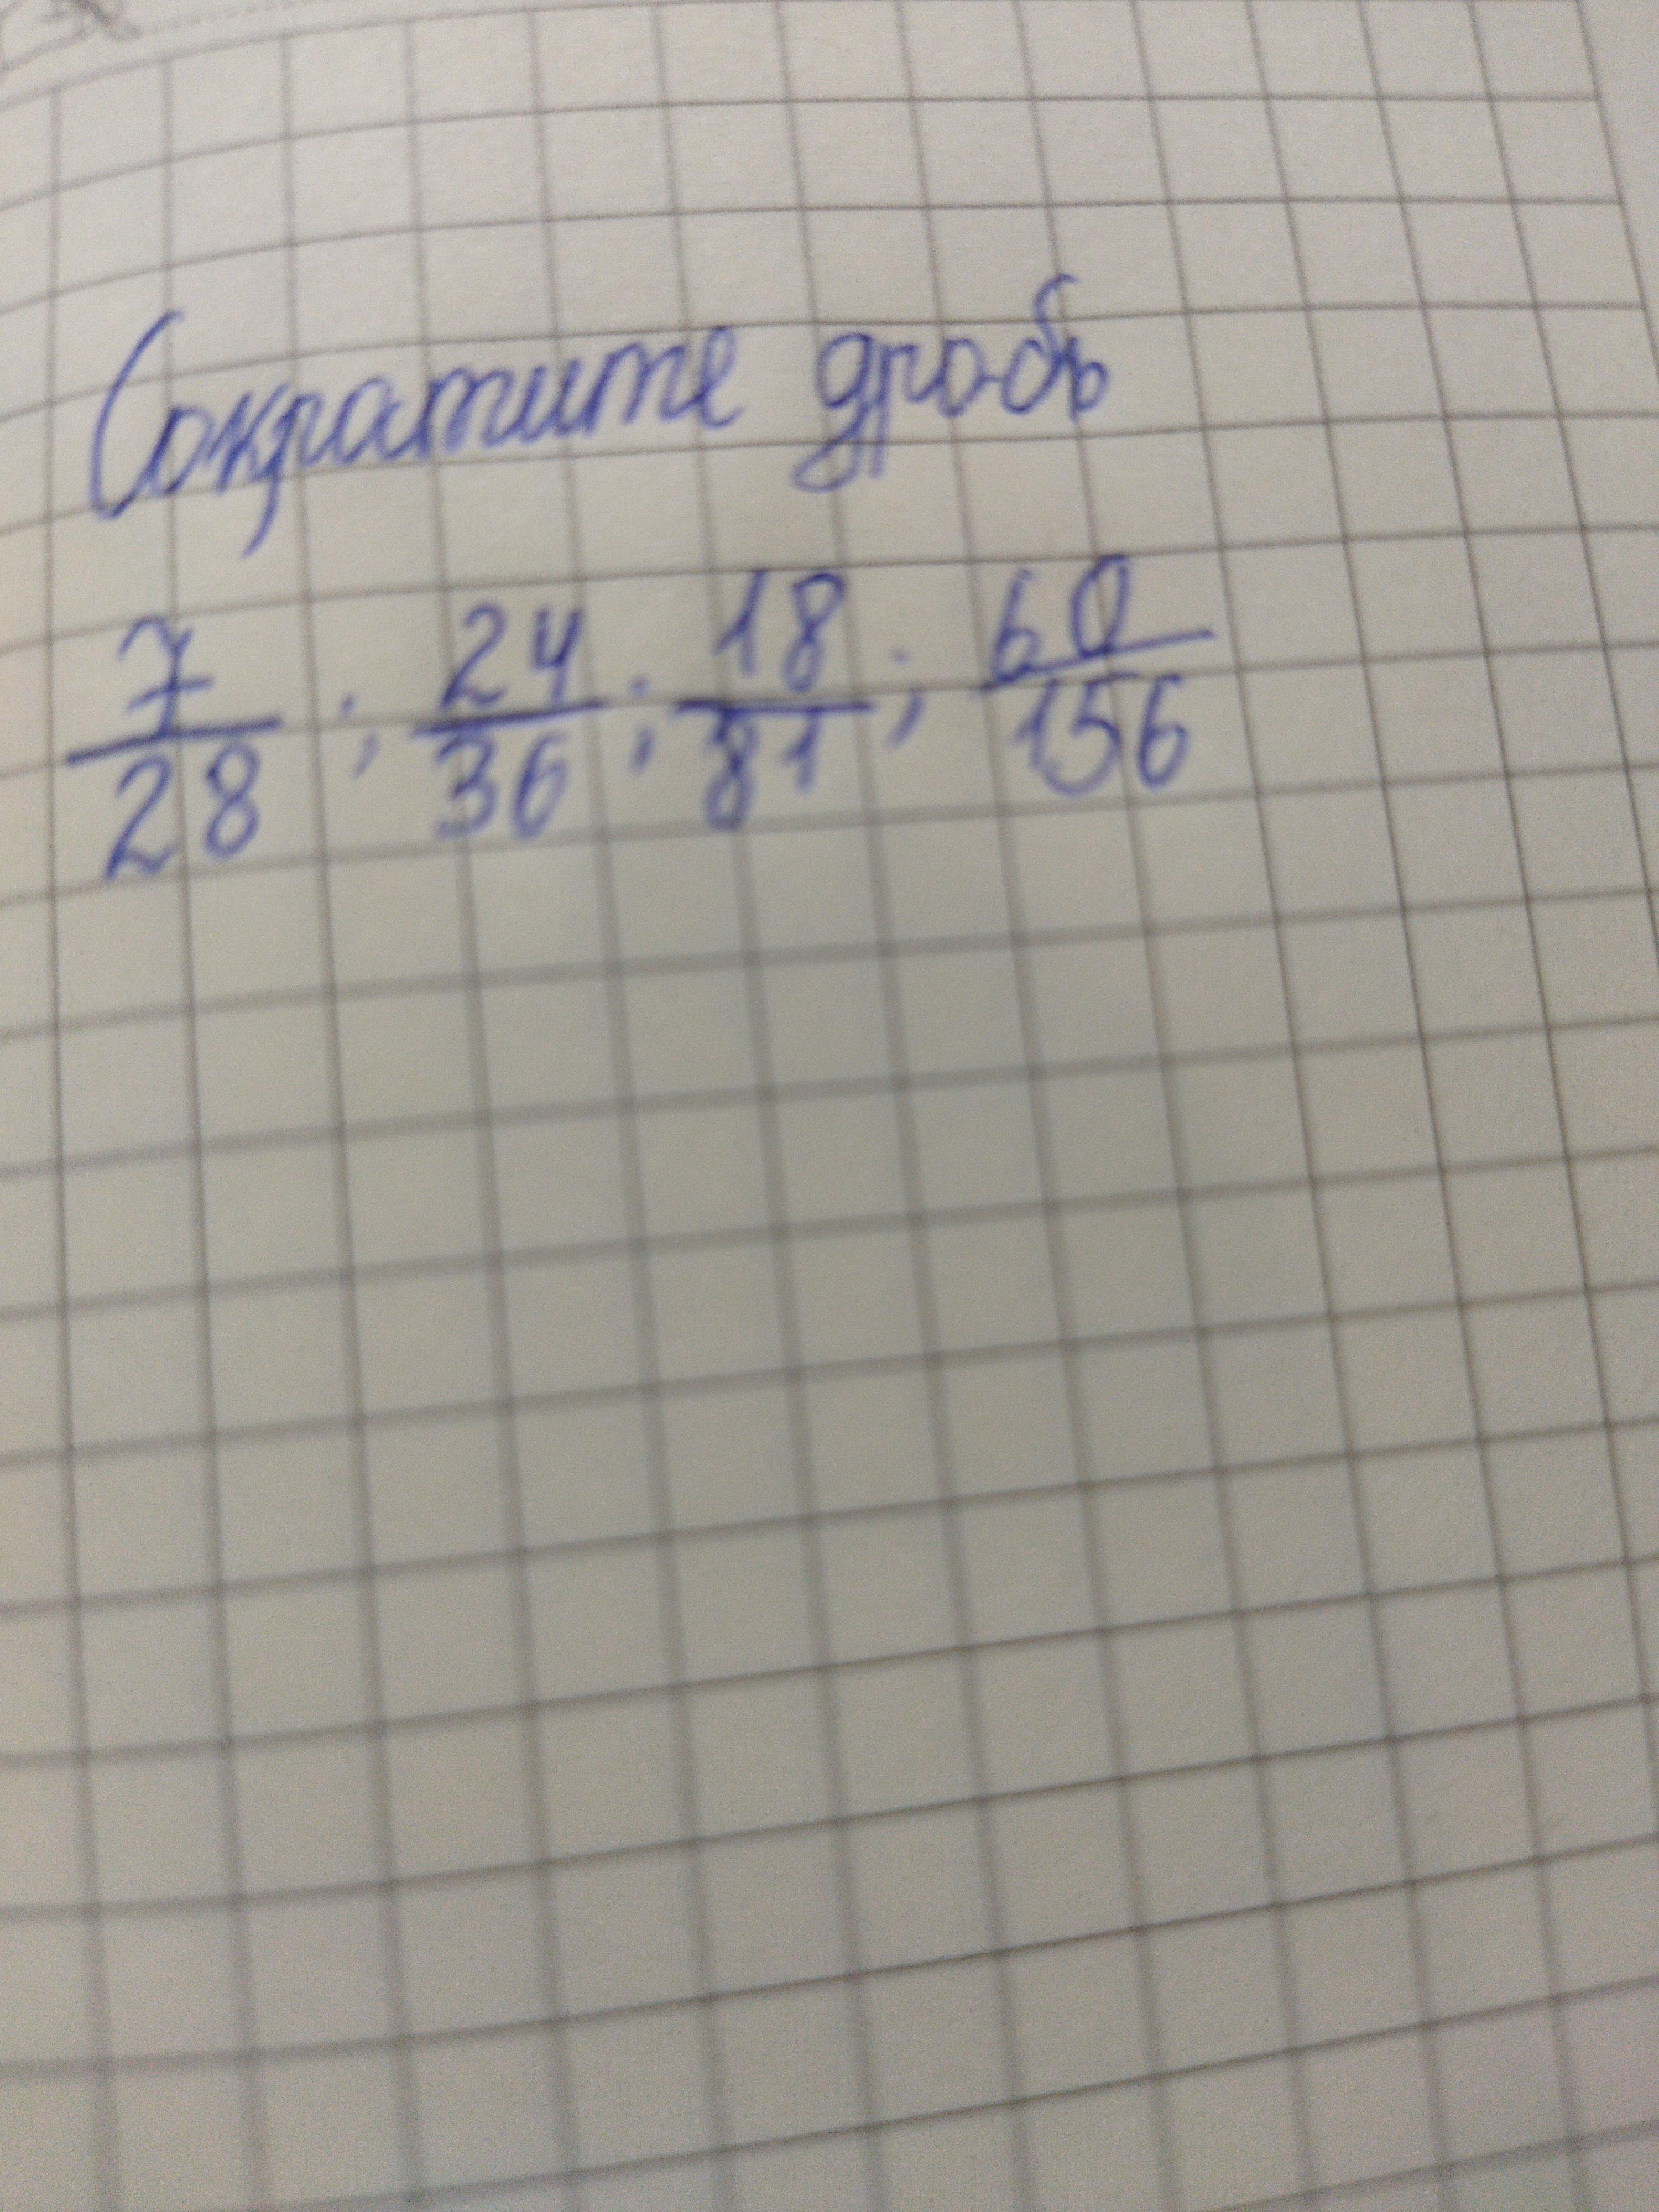 Сократите дробь
7/28 ; 24/36 ; 18/81 ; 60/156